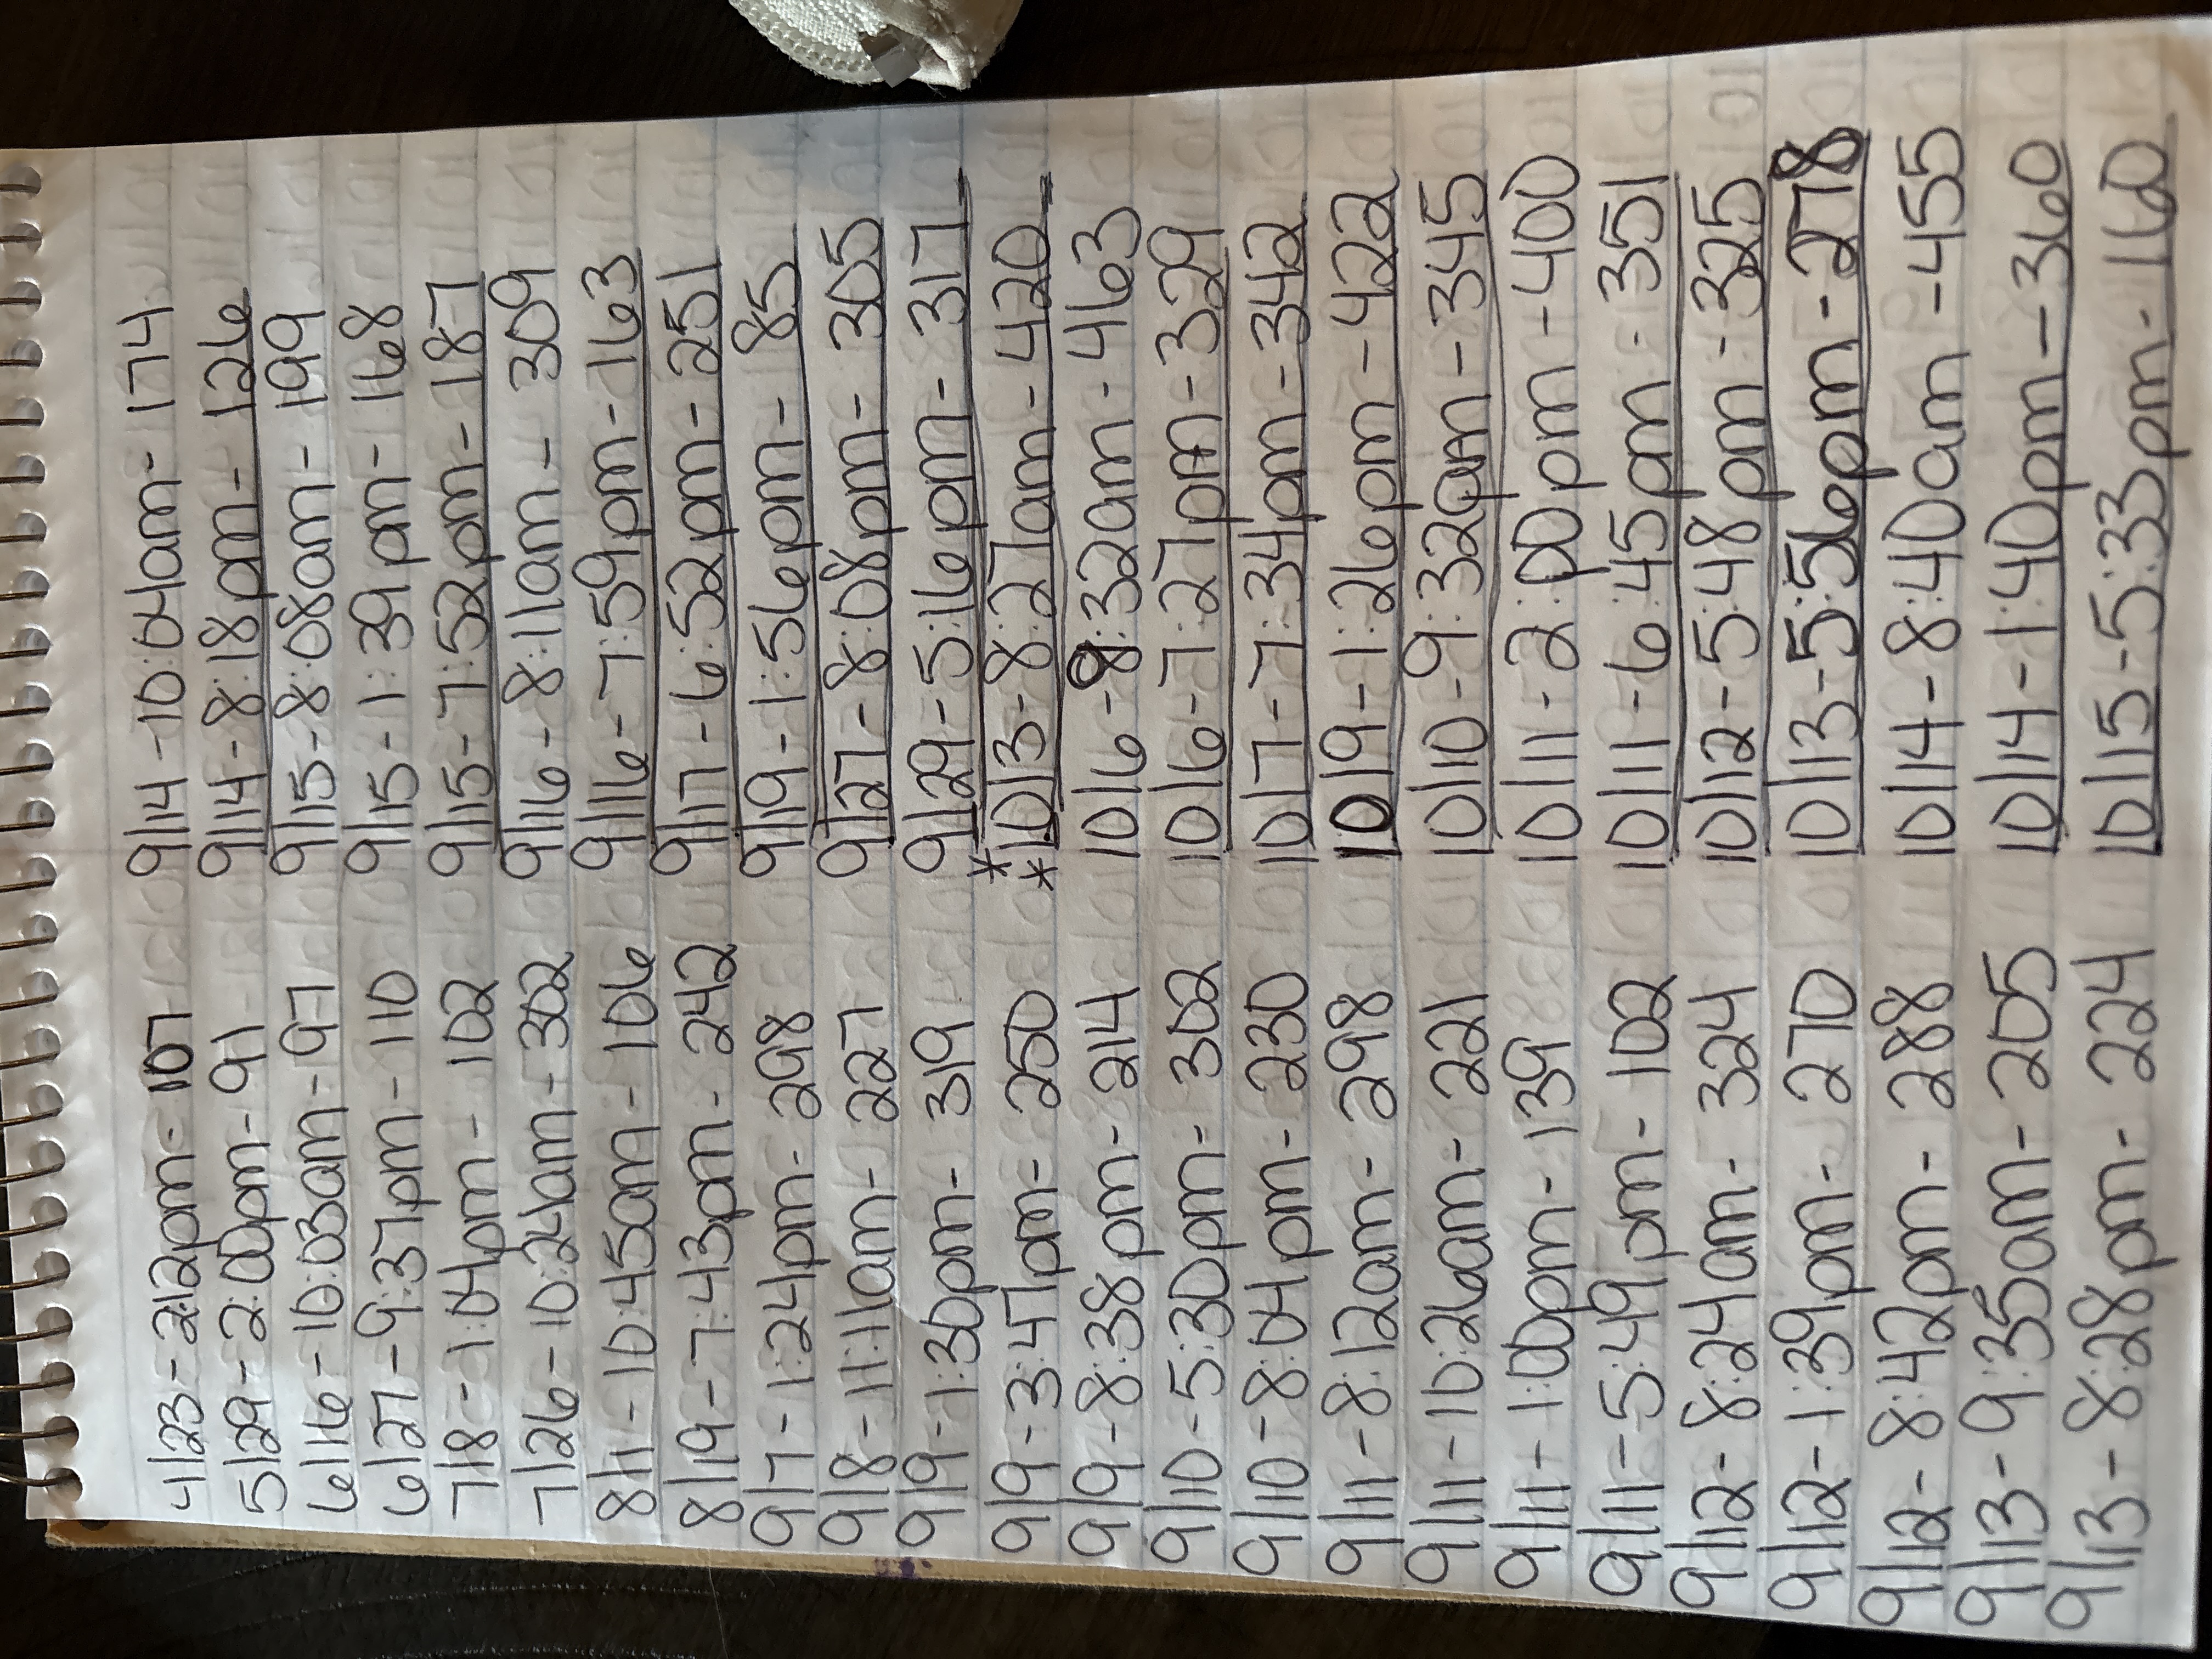 4/23 - 2:12pm - 107
5/29 - 2:00pm - 91
6/16 - 10:03am - 97
6/27 - 9:37pm - 110
7/8 - 1:04pm - 102
7/26 - 10:24am - 302
8/1 - 10:45am - 106
8/19 - 7:43pm - 242
9/7 - 1:24pm - 298
9/8 - 11:11am - 227
9/9 - 1:30pm - 319
9/9 - 3:47pm - 250
9/9 - 8:38pm - 214
9/10 - 5:30pm - 302
9/10 - 8:04pm - 230
9/11 - 8:12am - 298
9/11 - 10:26am - 221
9/11 - 1:00pm - 139
9/11 - 5:49pm - 102
9/12 - 8:24am - 324
9/12 - 1:39pm - 270
9/12 - 8:42pm - 288
9/13 - 9:35am - 205
9/13 - 8:28pm - 224
9/14 - 10:04am - 174
9/14 - 8:18pm - 126
9/15 - 8:08am - 199
9/15 - 1:39pm - 168
9/15 - 7:52pm - 187
9/16 - 8:11am - 309
9/16 - 7:59pm - 163
9/17 - 6:52pm - 251
9/19 - 1:56pm - 85
9/27 - 8:08pm - 305
9/29 - 5:16pm - 317
**10/3 - 8:27am - 420
10/6 - 9:32am - 463
10/6 - 7:27pm - 329
10/7 - 7:34pm - 342
10/9 - 1:26pm - 422
10/10 - 9:32am - 345
10/11 - 2:00pm - 400
10/11 - 6:45pm - 351
10/12 - 5:48pm - 325
10/13 - 5:56pm - 278
10/14 - 8:40am - 455
10/14 - 1:40pm - 360
10/15 - 5:33pm - 160